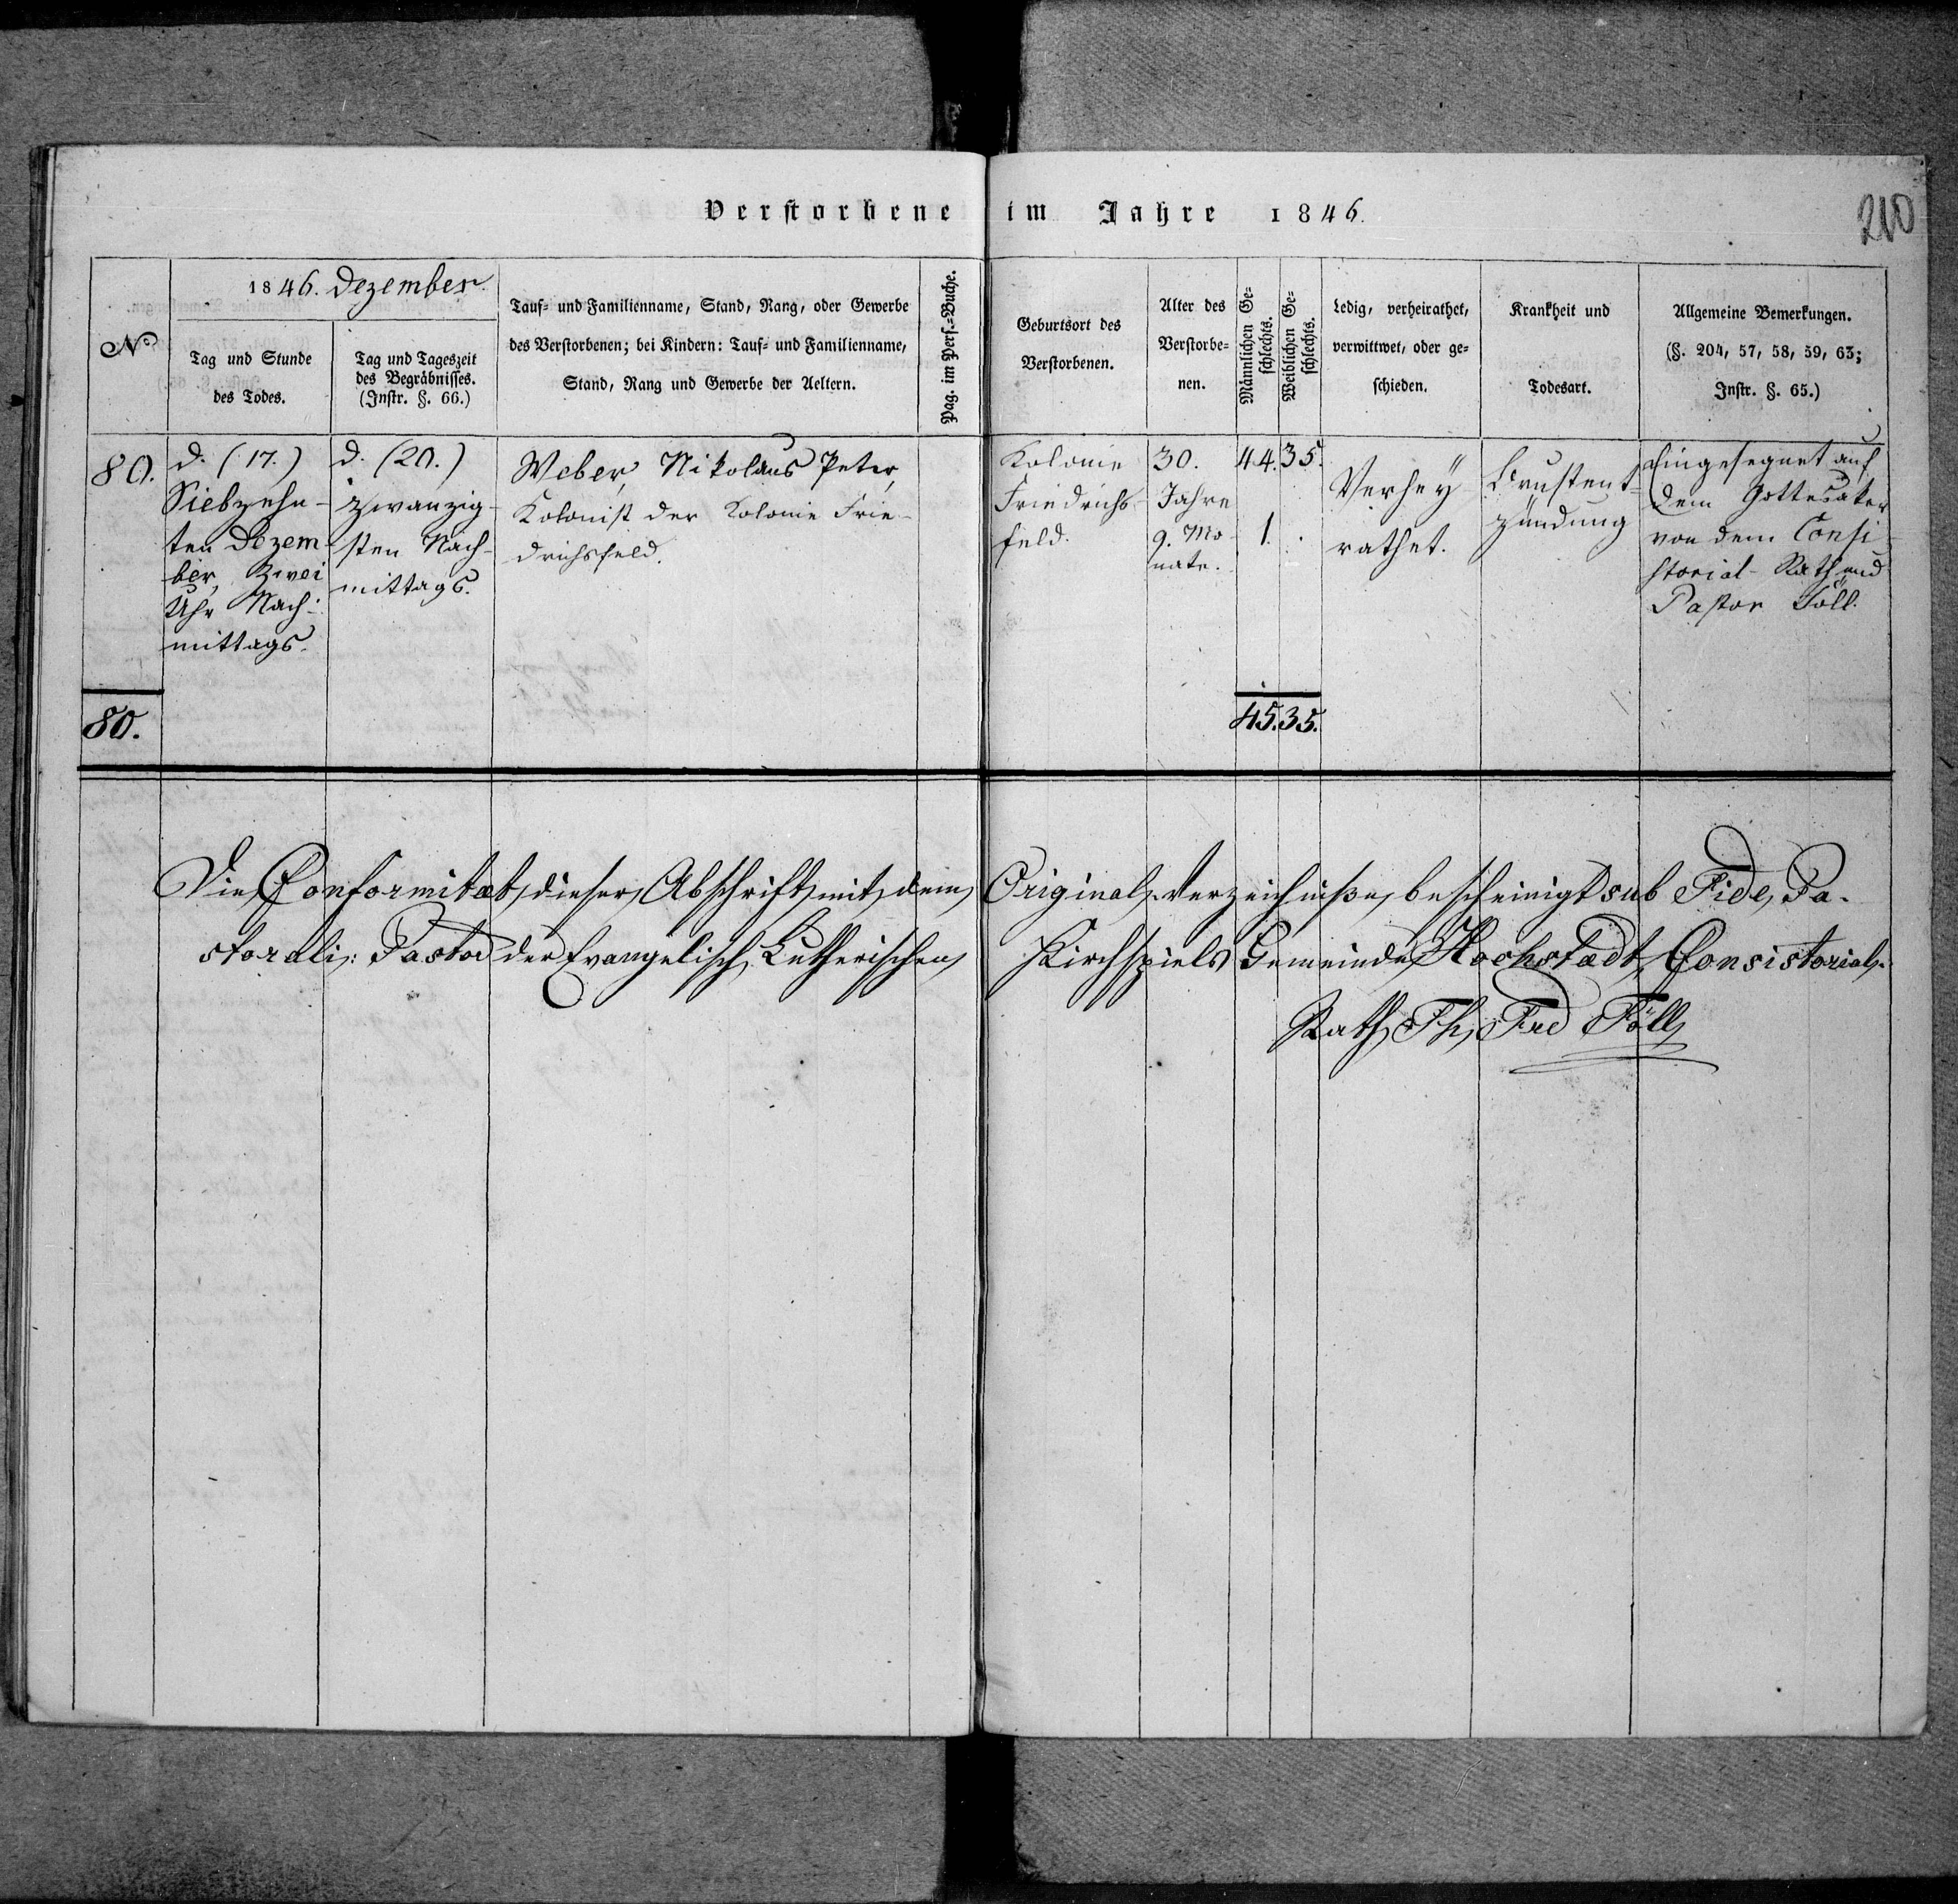 Verstorbene im Jahre 1846.
210
No
1846. Dezember.
Tag und Stunde
des Todes.
Tag und Tageszeit
des Begräbnisses.
(Instr. §. 66.)
Tauf- und Familienname, Stand, Rang, oder Gewerbe
des Verstorbenen; bei Kindern: Tauf- und Familienname,
Stand, Rang und Gewerbe der Aeltern.
Pag. im Pers.-Buche.
Geburtsort des
Verstorbenen.
Alter des
Verstorbe-
nen.
Männlichen Ge-
schlechts.
Weiblichen Ge-
schlechts.
Ledig, verheirathet,
verwittwet, oder ge-
schieden.
Krankheit und
Todesart.
Allgemeine Bemerkungen.
(§. 204, 57, 58, 59, 63;
Instr. §. 65.)
80.
d. (17.)
Siebzehn-
ten Dezem-
ber, Zwei
Uhr Nach-
mittags.
d. (20.)
zwanzig-
sten Nach-
mittags.
Weber, Nikolaus Peter,
Kolonist der Kolonie Frie-
drichsfeld.
Kolonie
Friedrichs-
feld.
30.
Jahre
9. Mo-
nate.
44.
1.
35.
Verhey-
rathet.
Brustent-
zündung
Eingesegnet auf
dem Gottesaker
von dem Consi-
storial-Rath und
Pastor Föll.
80.
45. 35.
Die Conformitæt dieser Abschrift mit dem Original-Verzeichniße, bescheinigt sub Fide Pa-
storali: Pastor der Evangelisch-Lutherischen Kirchspiels Gemeinde Hochstædt, Consistorial-
Rath Th. Fred Föll